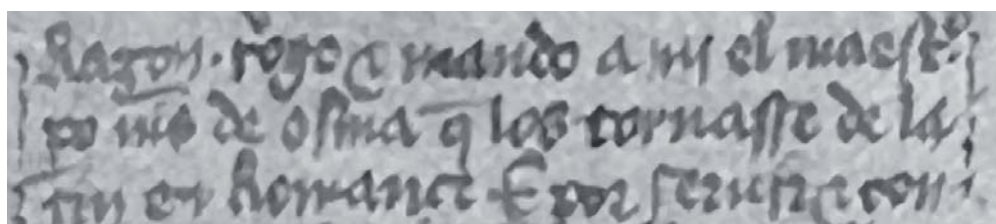 Ragon. rogo ⁊ mando a mi el maestº
po de osma q̄ los tornasse de la
tin en Romance E por seruir ⁊ con